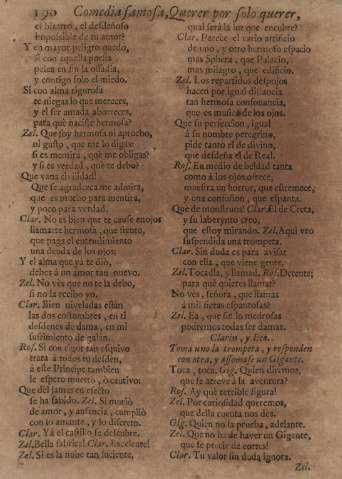 190 Comedia famosa, Querer por solo querer,
el bizarro, el desdeñoso
impossible de tu amor?
Y en mayor peligro quedo,
si con aquella porfia
pelea en fin la osadia,
y contigo solo el miedo.
Si con alma rigurosa
te niegas lo que mereces,
y el ser amada aborreces,
para què naciste hermosa?
Zel. Que soy hermosa ni apruebo,
ni gusto, que me lo digais:
si es mentira, què me obligas?
y si es verdad, què te debo?
Que vana civilidad!
Que se agradezca me admira,
que es mucho para mentira,
y poco para verdad.
Clar. No es bien que te cause enojos
llamarte hermosa, que siento,
que paga el entendimiento
una deuda de los ojos:
Y el alma que yà te diò,
debes à un amor tan nuevo.
Zel. No vès que no te la debo,
si no la recibo yo.
Clar. Bien niveladas estàn
las dos costumbres, en ti
desdenes de dama, en mi
sufrimiento de galan.
Ros. Si con rigor tan esquivo
trata à todos tu desdèn,
à este Principe tambien
le espero muerto, o cautivo:
Que del James en efecto
se ha sabido. Zel. Si muriò
de amor, y ausencia, cumpliò
con lo amante, y lo discreto.
Clar. Yà el castillo se descubre.
Zel. Bella fabrica! Clar. Excelente!
Zel. Si es la nube tan luciente,
qual serà la luz que encubre?
Clar. Parece el vario artificio
de uno, y otro hermoso espacio
mas Sphera, que Palacio,
mas milagro, que edificio.
Zel. Los repartidos despojos
hacen por igual distancia
tan hermosa consonancia,
que es musica de los ojos.
Que su perfeccion, igual
à su nombre peregrino,
pide tanto el de divino,
que desdeña el de Real.
Ros. En medio de beldad tanta
como à los ojos ofrece,
muestra un horror, que estremece,
y una confusion, que espanta.
Que de monstruos! Clar. El de Creta,
y su laberynto creo,
que estoy mirando. Zel. Aqui veo
suspendida una trompeta.
Clar. Sin duda es para avisar
con ella, que viene gente.
Zel. Tocadla, y llamad. Ros. Detente;
para què quieres llamar?
No vès, señora, que llamas
à mil fieras espantosas?
Zel. Ea, que sin lo medrosas
podremos todas ser damas.
Clarin, y Eco.
Toma uno la trompeta, y responden
con otra, y assomase un Gigante.
Toca, toca. Gig. Quien vivimos,
que se atreve à la aventura?
Ros. Ay què terrible figura!
Zel. Por curiosidad queremos,
que della cuenta nos dès.
Gig. Quien no la prueba, adelante.
Zel. Que no ha de haver un Gigante,
que se precie de cortès!
Clar. Tu valor sin duda ignora.
Zel.